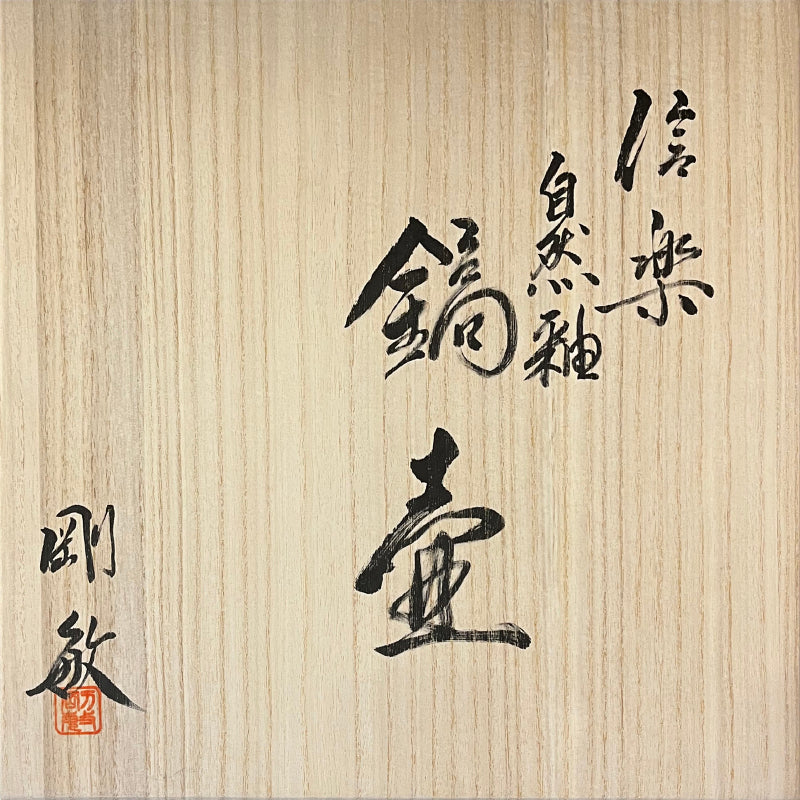 信楽
自然釉
鎬壷
剛敏